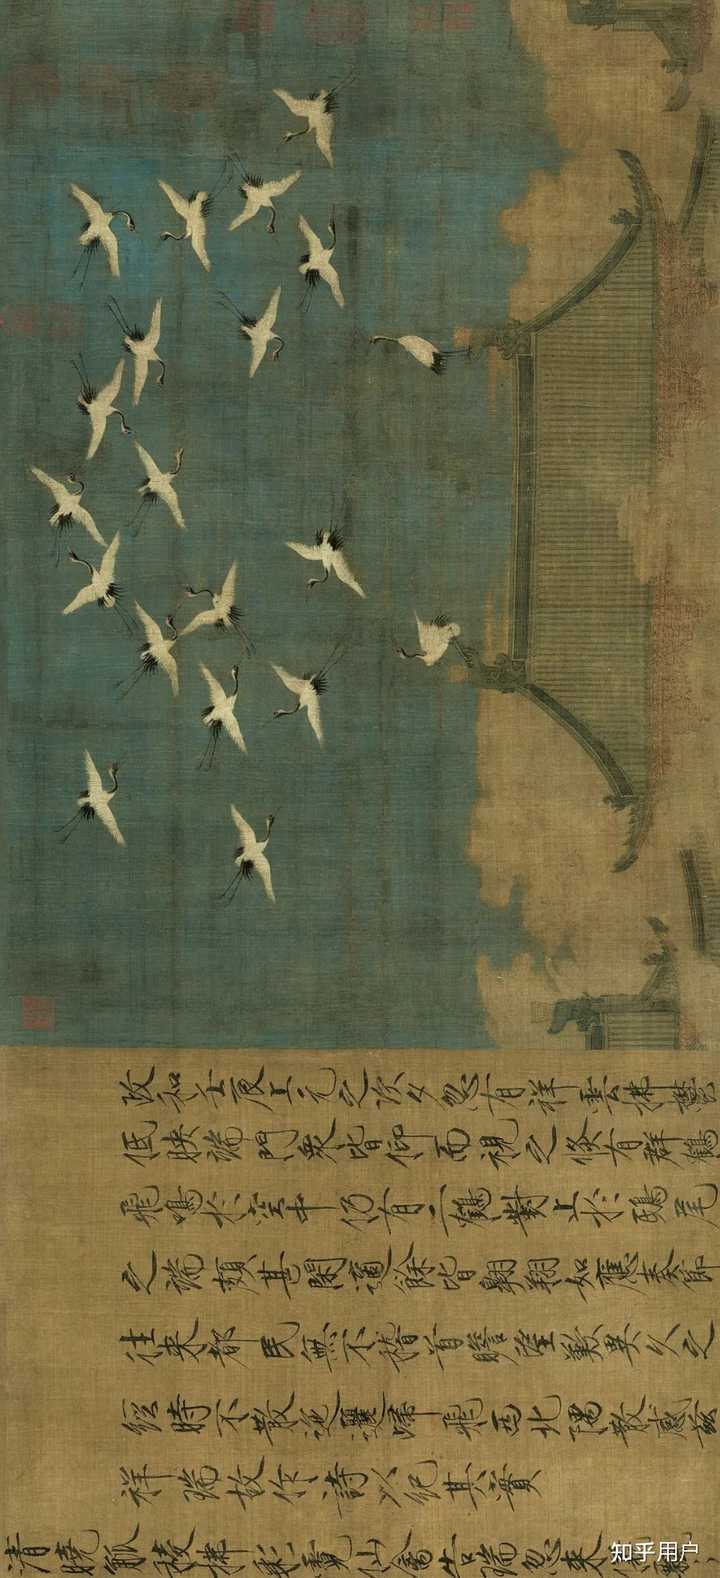 政和壬辰上元之次夕忽有祥雲拂鬱
低映端門衆皆仰而視之倏有群鶴
飛鳴於空中仍有二鶴對止於鴟尾
之端頗甚閑適餘皆翱翔如應奏節
往來都民無不稽首瞻望歎異久之
經時不散迤邐歸飛西北隅散感茲
祥瑞故作詩以紀其實
清曉觚稜拂彩霓仙禽告瑞忽來儀
知乎用户